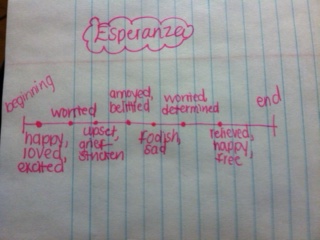 Esperanza
beginning
worried
annoyed,
belittled
worried,
determined
end
happy,
loved,
excited
upset,
grief-
stricken
foolish,
sad
relieved,
happy,
free